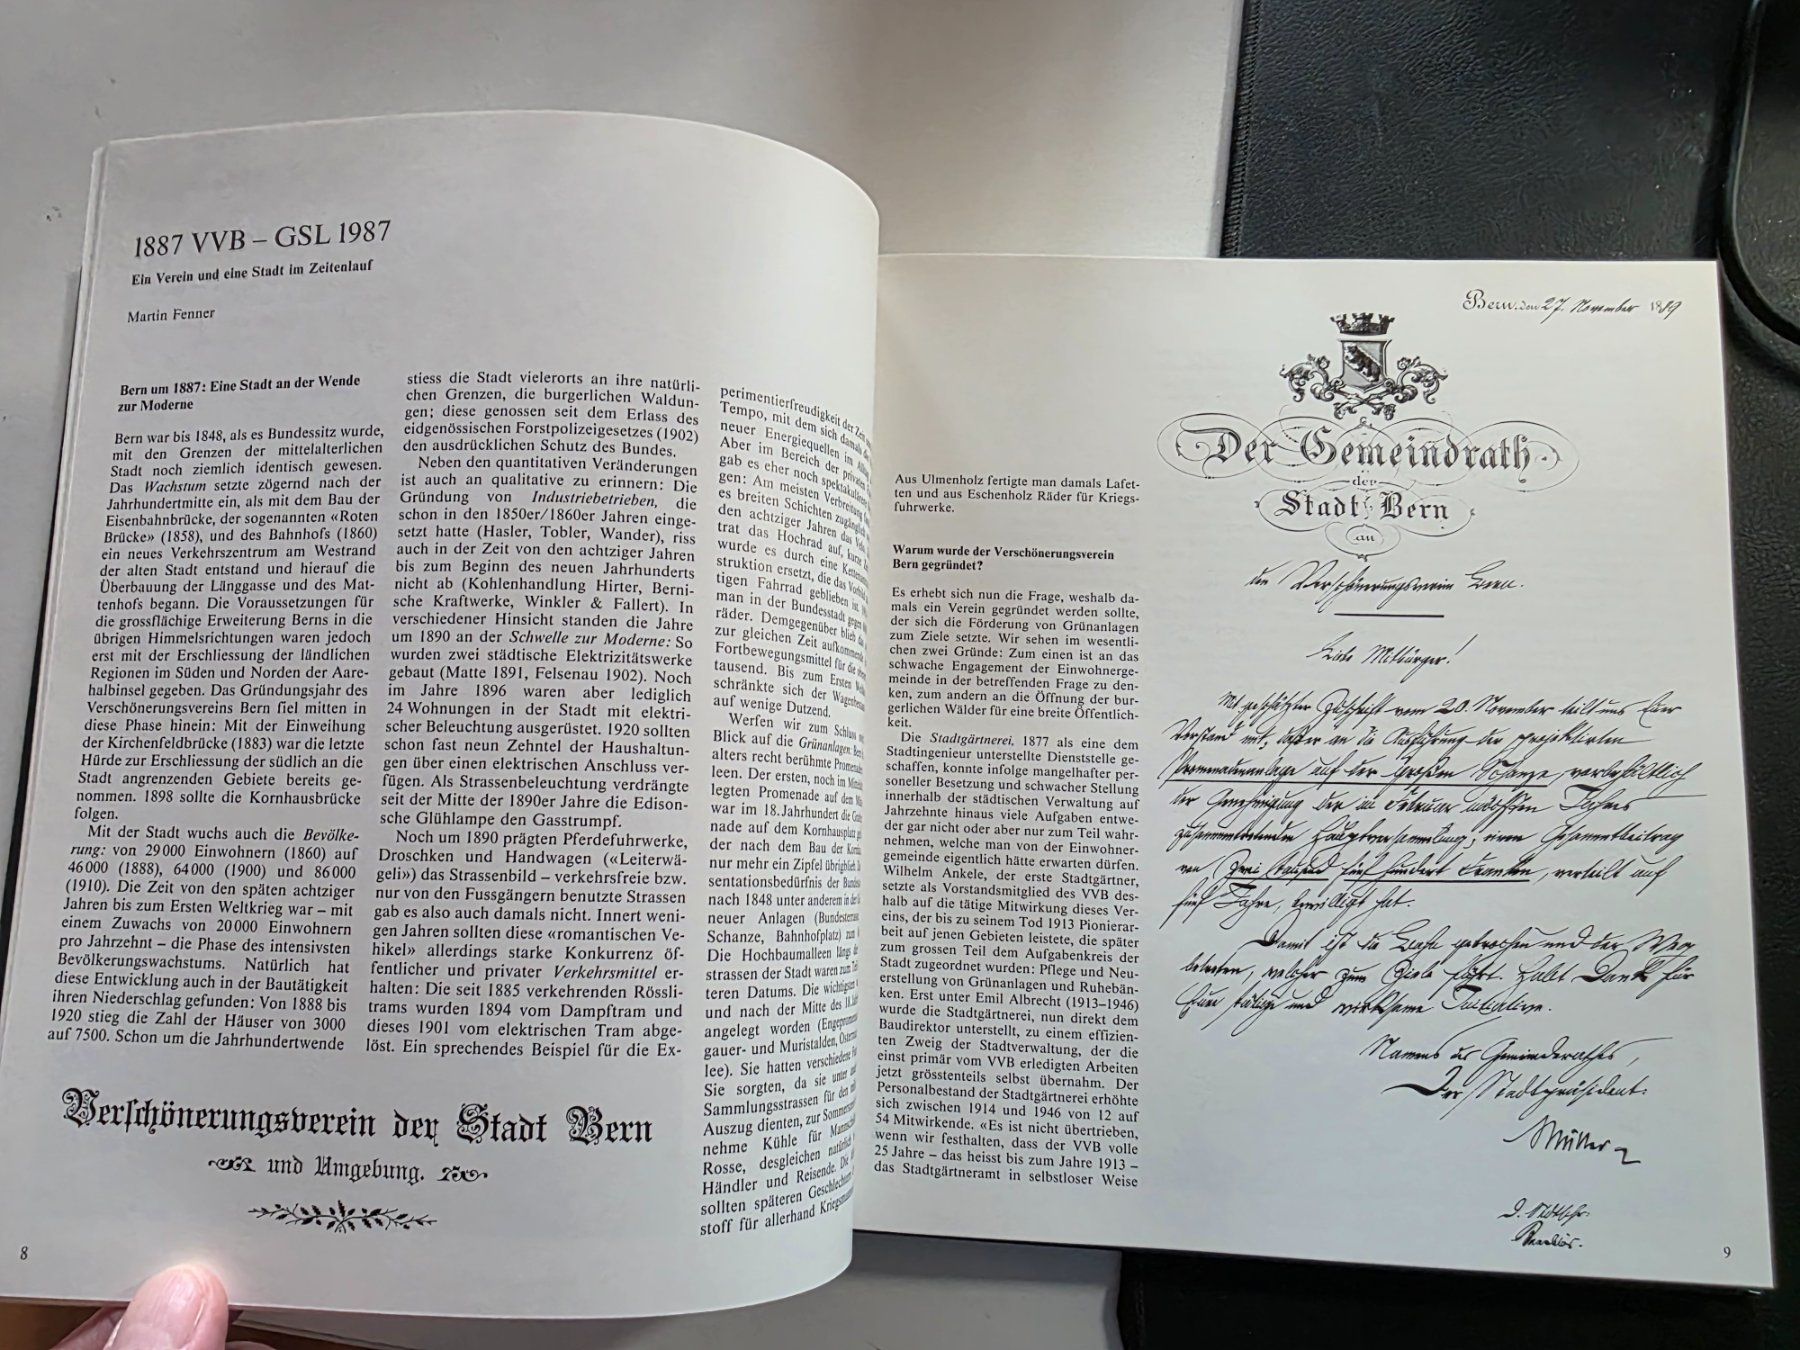 1887 VVB – GSL 1987
Ein Verein und eine Stadt im Zeitenlauf
Martin Fenner
Bern um 1887: Eine Stadt an der Wende
zur Moderne
Bern war bis 1848, als es Bundessitz wurde,
mit den Grenzen der mittelalterlichen
Stadt noch ziemlich identisch gewesen.
Das Wachstum setzte zögernd nach der
Jahrhundertmitte ein, als mit dem Bau der
Eisenbahnbrücke, der sogenannten «Roten
Brücke» (1858), und des Bahnhofs (1860)
ein neues Verkehrszentrum am Westrand
der alten Stadt entstand und hierauf die
Überbauung der Länggasse und des Mat-
tenhofs begann. Die Voraussetzungen für
die grossflächige Erweiterung Berns in die
übrigen Himmelsrichtungen waren jedoch
erst mit der Erschliessung der ländlichen
Regionen im Süden und Norden der Aare-
halbinsel gegeben. Das Gründungsjahr des
Verschönerungsvereins Bern fiel mitten in
diese Phase hinein: Mit der Einweihung
der Kirchenfeldbrücke (1883) war die letzte
Hürde zur Erschliessung der südlich an die
Stadt angrenzenden Gebiete bereits ge-
nommen. 1898 sollte die Kornhausbrücke
folgen.
Mit der Stadt wuchs auch die Bevölke-
rung: von 29000 Einwohnern (1860) auf
46000 (1888), 64000 (1900) und 86000
(1910). Die Zeit von den späten achtziger
Jahren bis zum Ersten Weltkrieg war – mit
einem Zuwachs von 20000 Einwohnern
pro Jahrzehnt – die Phase des intensivsten
Bevölkerungswachstums. Natürlich hat
diese Entwicklung auch in der Bautätigkeit
ihren Niederschlag gefunden: Von 1888 bis
1920 stieg die Zahl der Häuser von 3000
auf 7500. Schon um die Jahrhundertwende
stiess die Stadt vielerorts an ihre natürli-
chen Grenzen, die burgerlichen Waldun-
gen; diese genossen seit dem Erlass des
eidgenössischen Forstpolizeigesetzes (1902)
den ausdrücklichen Schutz des Bundes.
Neben den quantitativen Veränderungen
ist auch an qualitative zu erinnern: Die
Gründung von Industriebetrieben, die
schon in den 1850er/1860er Jahren einge-
setzt hatte (Hasler, Tobler, Wander), riss
auch in der Zeit von den achtziger Jahren
bis zum Beginn des neuen Jahrhunderts
nicht ab (Kohlenhandlung Hirter, Berni-
sche Kraftwerke, Winkler & Fallert). In
verschiedener Hinsicht standen die Jahre
um 1890 an der Schwelle zur Moderne: So
wurden zwei städtische Elektrizitätswerke
gebaut (Matte 1891, Felsenau 1902). Noch
im Jahre 1896 waren aber lediglich
24 Wohnungen in der Stadt mit elektri-
scher Beleuchtung ausgerüstet. 1920 sollten
schon fast neun Zehntel der Haushaltun-
gen über einen elektrischen Anschluss ver-
fügen. Als Strassenbeleuchtung verdrängte
seit der Mitte der 1890er Jahre die Edison-
sche Glühlampe den Gasstrumpf.
Noch um 1890 prägten Pferdefuhrwerke,
Droschken und Handwagen («Leiterwä-
geli») das Strassenbild – verkehrsfreie bzw.
nur von den Fussgängern benutzte Strassen
gab es also auch damals nicht. Innert weni-
gen Jahren sollten diese «romantischen Ve-
hikel» allerdings starke Konkurrenz öf-
fentlicher und privater Verkehrsmittel er-
halten: Die seit 1885 verkehrenden Rössli-
trams wurden 1894 vom Dampftram und
dieses 1901 vom elektrischen Tram abge-
löst. Ein sprechendes Beispiel für die Ex-
perimentierfreudigkeit der Zeit
Tempo, mit dem sich damals
neuer Energiequellen im
Aber im Bereich der privaten
gab es eher noch
gen: Am meisten
es breiten Schichten
den achtziger Jahren das
trat das Hochrad auf, kurze
wurde es durch eine
struktion ersetzt, die das
tigen Fahrrad geblieben ist.
man in der Bundesstadt gegen
räder. Demgegenüber blieb
zur gleichen Zeit
Fortbewegungsmittel für die
tausend. Bis zum Ersten
schränkte sich der
auf wenige Dutzend.
Werfen wir zum Schluss
Blick auf die Grünanlagen:
alters recht berühmte
leen. Der ersten, noch im
legten Promenade auf dem
war im 18. Jahrhundert die
nade auf dem Kornhausplatz
der nach dem Bau der
nur mehr ein Zipfel übrigblieb.
sentationsbedürfnis der
nach 1848 unter anderem in der
neuer Anlagen
Schanze, Bahnhofplatz) zum
Die Hochbaumalleen längs
strassen der Stadt waren zum
teren Datums. Die wichtigsten
und nach der Mitte des 18.
angelegt worden
gauer- und Muristalden,
lee). Sie hatten verschiedene
Sie sorgten, da sie unter
Sammlungsstrassen für den
Auszug dienten, zur
nehme Kühle für
Rosse, desgleichen natürlich
Händler und Reisende. Die
sollten späteren
stoff für allerhand
Verschönerungsverein der Stadt Bern
und Umgebung.
8
Aus Ulmenholz fertigte man damals Lafet-
ten und aus Eschenholz Räder für Kriegs-
fuhrwerke.
Warum wurde der Verschönerungsverein
Bern gegründet?
Es erhebt sich nun die Frage, weshalb da-
mals ein Verein gegründet werden sollte,
der sich die Förderung von Grünanlagen
zum Ziele setzte. Wir sehen im wesentli-
chen zwei Gründe: Zum einen ist an das
schwache Engagement der Einwohnerge-
meinde in der betreffenden Frage zu den-
ken, zum andern an die Öffnung der bur-
gerlichen Wälder für eine breite Öffentlich-
keit.
Die Stadtgärtnerei, 1877 als eine dem
Stadtingenieur unterstellte Dienststelle ge-
schaffen, konnte infolge mangelhafter per-
soneller Besetzung und schwacher Stellung
innerhalb der städtischen Verwaltung auf
Jahrzehnte hinaus viele Aufgaben entwe-
der gar nicht oder aber nur zum Teil wahr-
nehmen, welche man von der Einwohner-
gemeinde eigentlich hätte erwarten dürfen.
Wilhelm Ankele, der erste Stadtgärtner,
setzte als Vorstandsmitglied des VVB des-
halb auf die tätige Mitwirkung dieses Ver-
eins, der bis zu seinem Tod 1913 Pionierar-
beit auf jenen Gebieten leistete, die später
zum grossen Teil dem Aufgabenkreis der
Stadt zugeordnet wurden: Pflege und Neu-
erstellung von Grünanlagen und Ruhebän-
ken. Erst unter Emil Albrecht (1913–1946)
wurde die Stadtgärtnerei, nun direkt dem
Baudirektor unterstellt, zu einem effizien-
ten Zweig der Stadtverwaltung, der die
einst primär vom VVB erledigten Arbeiten
jetzt grösstenteils selbst übernahm. Der
Personalbestand der Stadtgärtnerei erhöhte
sich zwischen 1914 und 1946 von 12 auf
54 Mitwirkende. «Es ist nicht übertrieben,
wenn wir festhalten, dass der VVB volle
25 Jahre – das heisst bis zum Jahre 1913 –
das Stadtgärtneramt in selbstloser Weise
Bern, den 27. November 1889
Der Gemeindrath
der
Stadt Bern
an
den Verschönerungsverein Bern.
Liebe Mitbürger!
Mit geschätzter Zuschrift vom 20. November teilt uns Euer
Vorstand mit, daß er an die Ausführung der projektierten
Promenadenanlage auf der großen Schanze, vorbehältlich
der Genehmigung der im Februar nächsten Jahres
zusammentretenden Hauptversammlung, einen Gesammtbeitrag
von Zwei tausend fünf hundert Franken, verteilt auf
fünf Jahre, bewilligt hat.
Damit ist die Bahn gebrochen und der Weg
betreten, welcher zum Ziele führt. Habet Dank für
Eure tätige und wirksame Initiative.
Namens des Gemeinderathes,
Der Stadtpräsident:
Müller
9